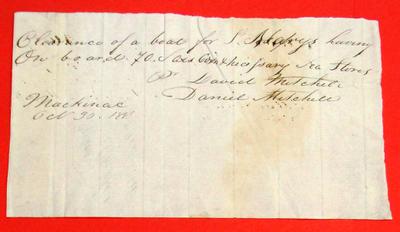 Clearance of a boat for S. Marys having
On board 70. Sacks Corn & necessary Sea Stores
Pr David Mitchell
Daniel Mitchell
Mackinac
Oct 30. 18